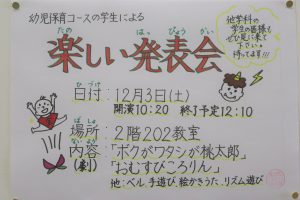 幼児保育コースの学生による
他学科の
学生の皆様も
ぜひ見に来て
下さい。
待ってます!!!
たの はっ ぴょう かい
楽しい発表会
ひ づけ
日付:12月3日(土)
開演10:20 終了予定12:10
ば しょ
場所:2階202教室
ない よう
内容:「ボクがワタシが桃太郎」
(劇)「おむすびころりん」
他:ベル、手遊び、絵かきうた、リズム遊び